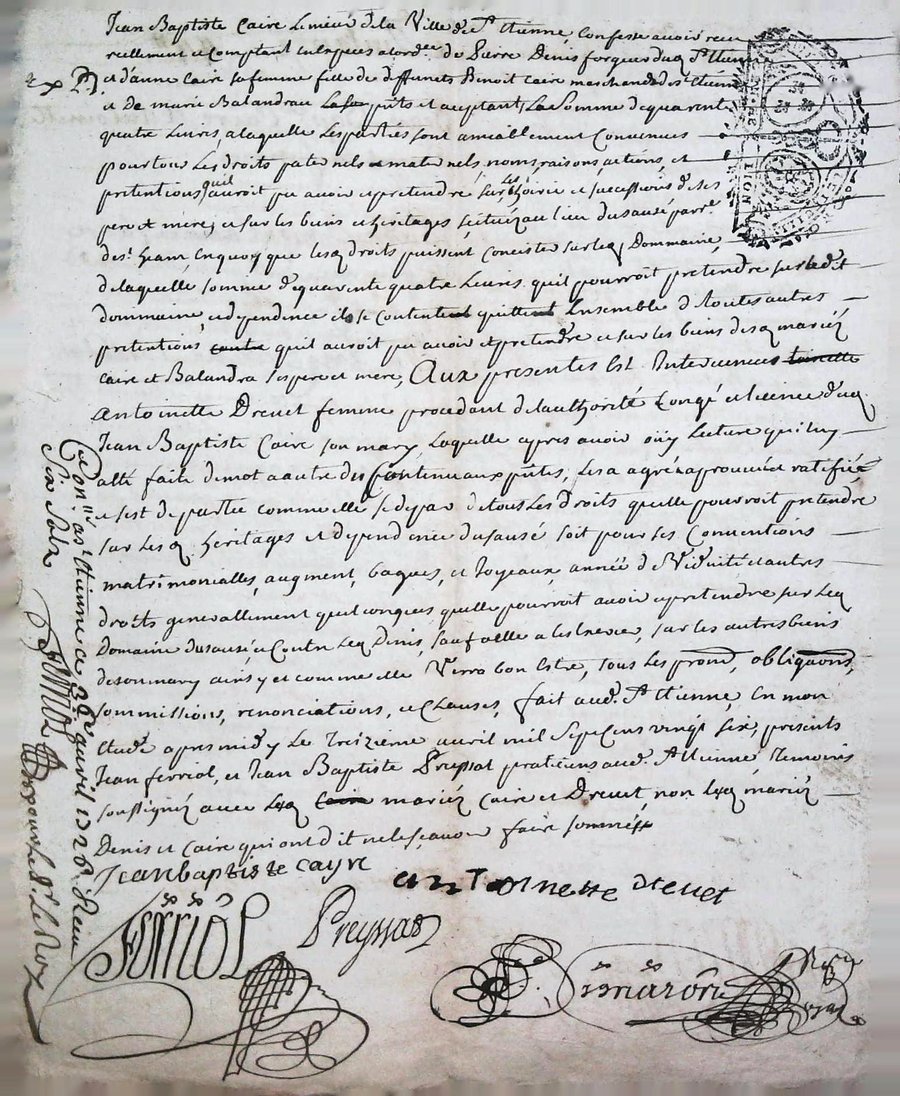 Jean Baptiste Caire Limeur de la Ville de St Etienne, Confesse avoir receu
reellement et Comptant en especes de Pierre Denis forgeur dud St Etienne
et danne Caire sa femme fille de deffunts Benoit Caire marchand de St Etienne
et de marie Balandrau La somme de quarante
quatre Livres, a laquelle Les parties sont amiablement Convenues
pour tous Les droits paternels et maternels, noms, raisons, actions, et
pretentions quil auroit pu avoir et pretendre sur Les hoirie et successions de ses
pere et mere, et sur les biens et heritages scitues au lieu du sausé parr.
de St heand, En quoy que lesq droits puissent concister sur led Dommaine,
de laquelle somme de quarente quatre Livres quil pourroit pretendre sur ledit
dommaine, et dependence il se contente et quitte Ensemble de toutes autres
pretentions quil auroit pu avoir et pretendre et sur les biens desq mariez
Caire et Balandra ses pere et mere, Aux presentes Est Intervenue
Antoinette Drevet femme procedant de lauthorité Congé et licence dud
Jean Baptiste Caire son mary, Laquelle apres avoir oüy Lecture qui luy
a esté faite de mot a autre du Contenu aux pntes, Les a agréé aprouvé et ratifié,
et sest departie comme elle se depar de tous Les Droits quelle pouvroit pretendre
sur Lesq heritages et dependence du sausé soit pour ses Conventions
matrimonialles, augment, bagues, et Joyeaux, année de Viduité et autres
droits generallement quelconques quelle pourroit avoir et pretendre sur Led
Domaine du sausé et Contre Led Denis, sauf a elle a les exercer, sur les autres biens
de son mary ainsy et comme elle Verra bon Estre, sous Les prom, obligaons,
sommissions, renonciations, et Clauses, fait aud. St Etienne, En mon
Etude apres midy Le treizieme avril mil sept cens vingt six, presents
Jean ferriol, et Jean Baptiste Preyssat praticiens aud. St Etienne temoins
soussignez avec Lesq mariez Caire et Drevet, non Lesq mariez
Denis et Caire qui ont dit ne le scavoir faire sommés
Jean baptiste Cayre
antoinette drevet
ferriol
Preyssat
Con.lle a St Etienne ce 24e avril 1726. Receu
Six Sols